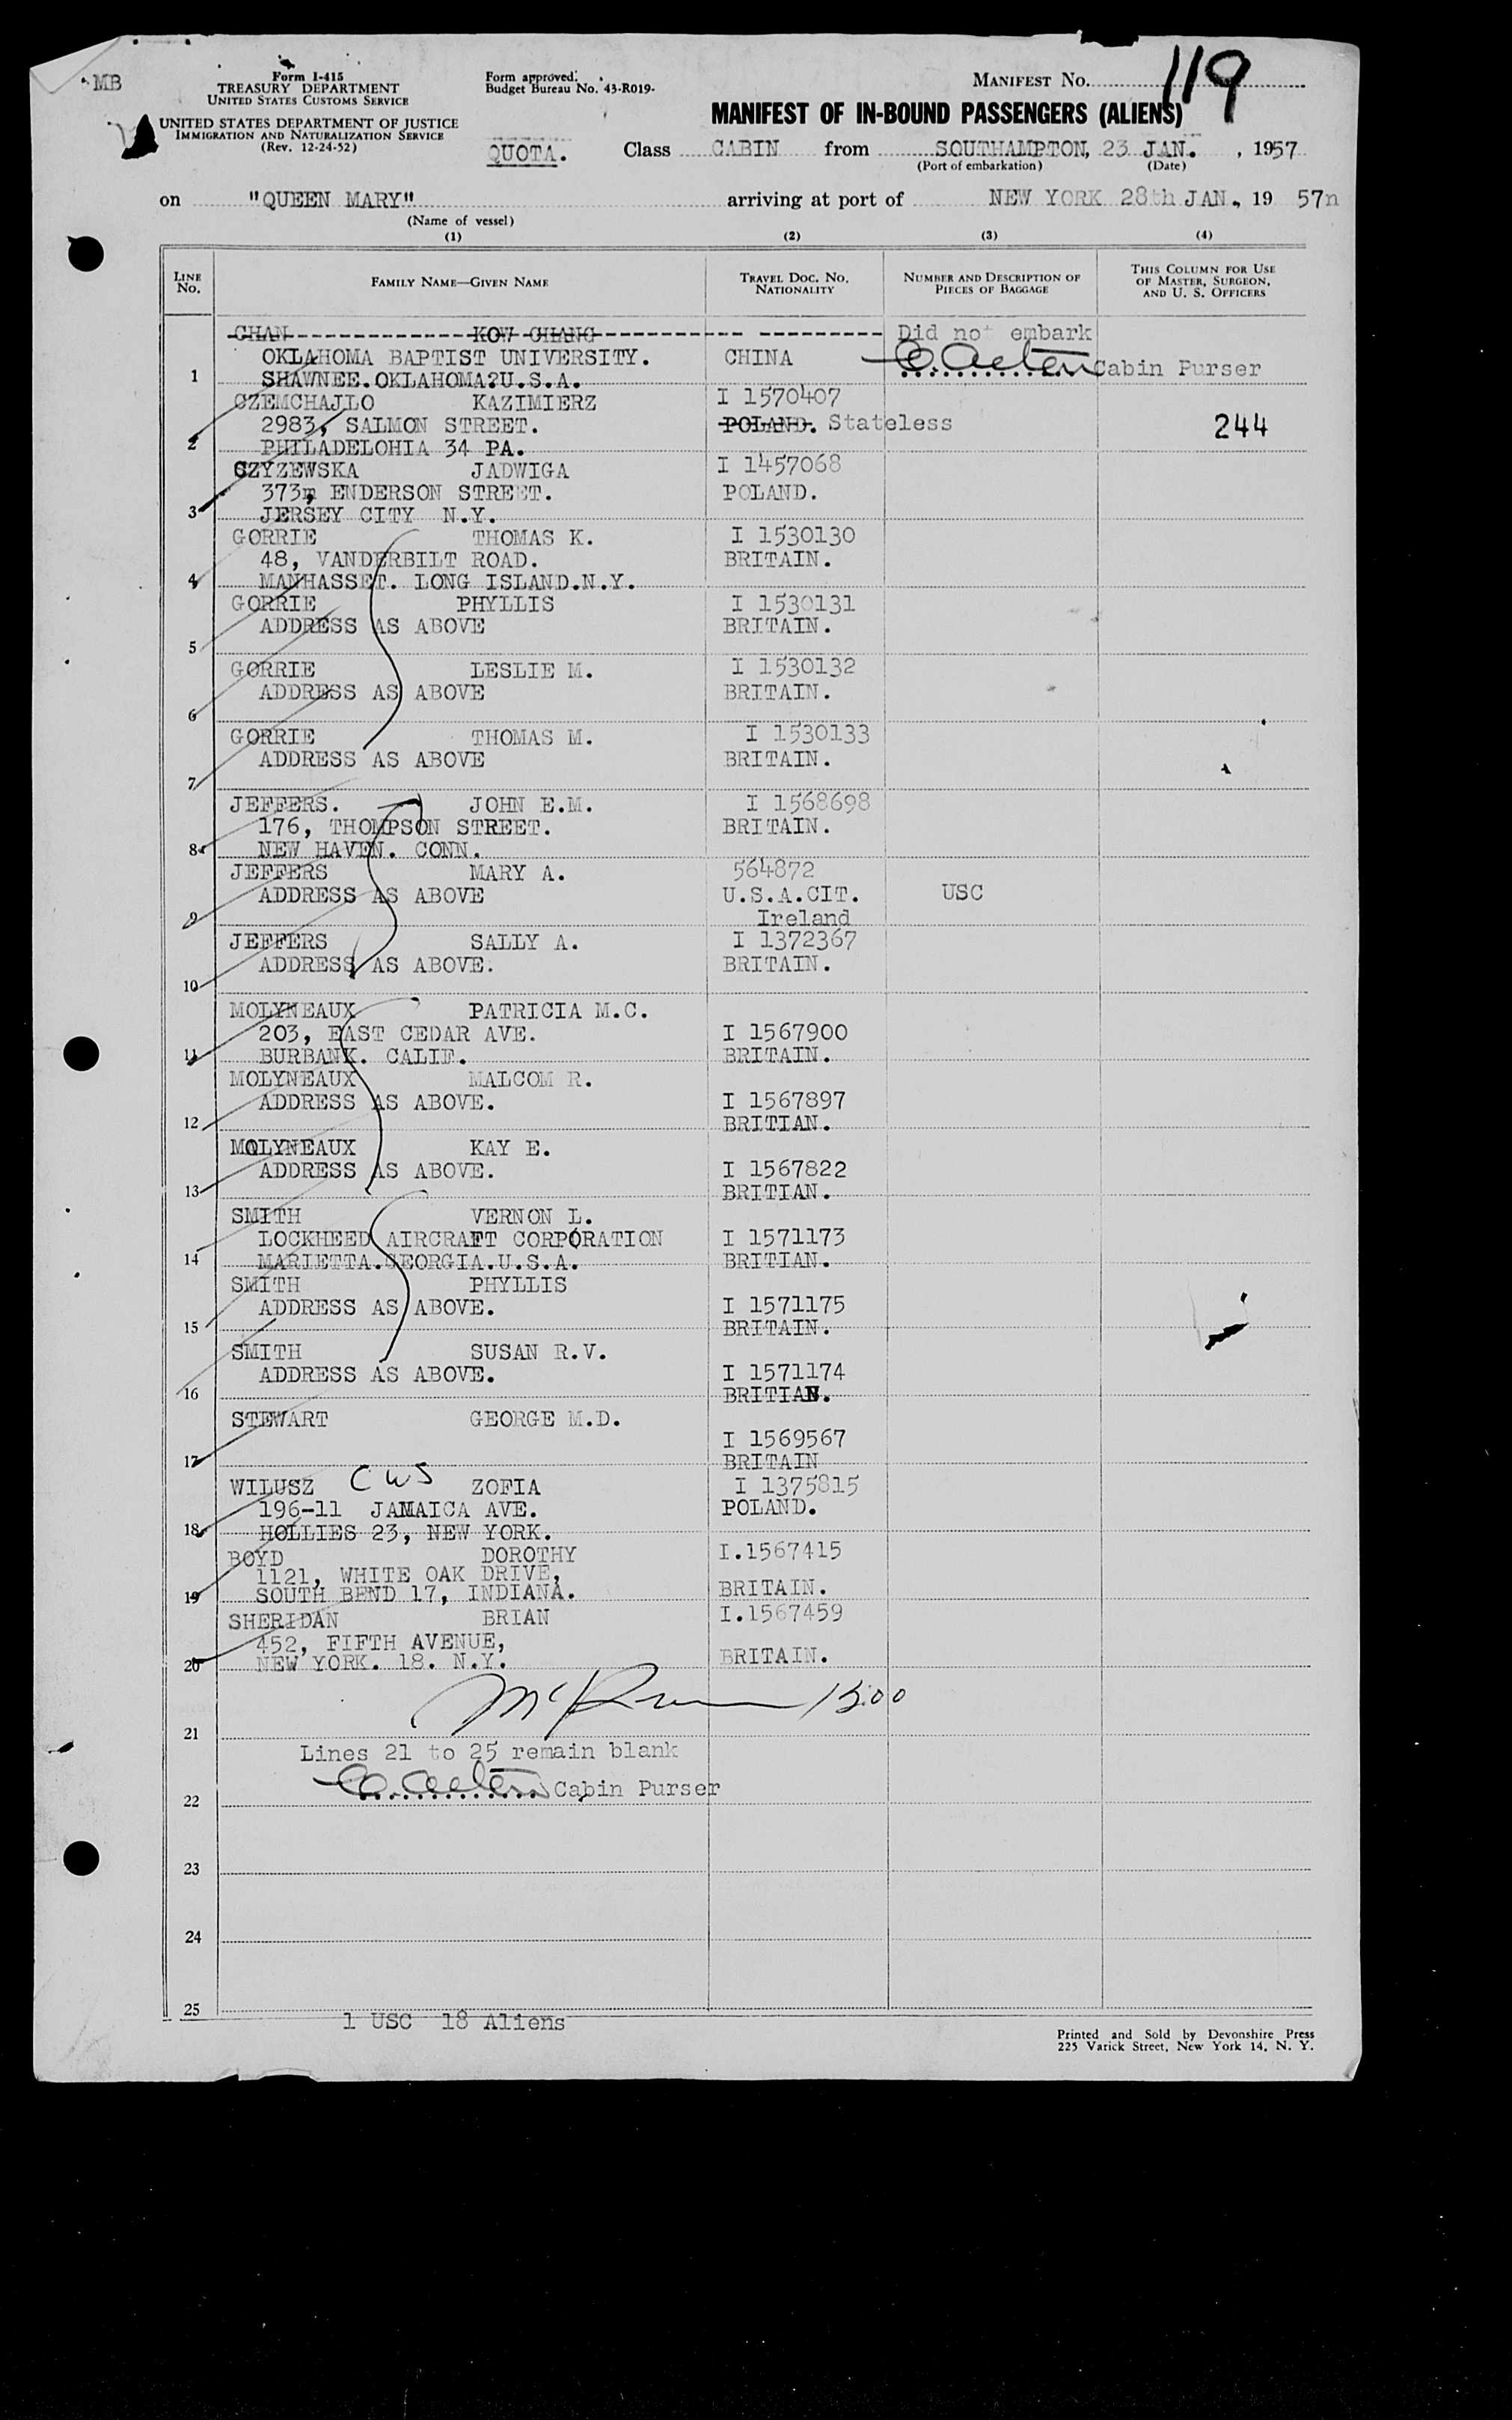 MB
Form I-415
TREASURY DEPARTMENT
UNITED STATES CUSTOMS SERVICE
UNITED STATES DEPARTMENT OF JUSTICE
IMMIGRATION AND NATURALIZATION SERVICE
(Rev. 12-24-52)
Form approved.
Budget Bureau No. 43-R019-
MANIFEST NO. 119
MANIFEST OF IN-BOUND PASSENGERS (ALIENS)
QUOTA. Class CABIN from SOUTHAMPTON, 23 JAN. , 1957
(Port of embarkation) (Date)
on "QUEEN MARY" arriving at port of NEW YORK 28th JAN., 19 57n
(Name of vessel)
(1) (2) (3) (4)
LINE NO. FAMILY NAME—GIVEN NAME TRAVEL DOC. NO. NATIONALITY NUMBER AND DESCRIPTION OF PIECES OF BAGGAGE THIS COLUMN FOR USE OF MASTER, SURGEON, AND U. S. OFFICERS
CHAN KOW CHANG Did not embark
OKLAHOMA BAPTIST UNIVERSITY. CHINA Cabin Purser
1 SHAWNEE.OKLAHOMA?U.S.A.
CZEMCHAJLO KAZIMIERZ I 1570407
2983, SALMON STREET. POLAND. Stateless 244
2 PHILADELOHIA 34 PA.
CZYZEWSKA JADWIGA I 1457068
373, ENDERSON STREET. POLAND.
3 JERSEY CITY N.Y.
GORRIE THOMAS K. I 1530130
48, VANDERBILT ROAD. BRITAIN.
4 MANHASSET. LONG ISLAND.N.Y.
GORRIE PHYLLIS I 1530131
ADDRESS AS ABOVE BRITAIN.
5
GORRIE LESLIE M. I 1530132
ADDRESS AS ABOVE BRITAIN.
6
GORRIE THOMAS M. I 1530133
ADDRESS AS ABOVE BRITAIN.
7
JEFFERS. JOHN E.M. I 1568698
176, THOMPSON STREET. BRITAIN.
8 NEW HAVEN. CONN.
JEFFERS MARY A. 564872
ADDRESS AS ABOVE U.S.A.CIT. USC
9 Ireland
JEFFERS SALLY A. I 1372367
ADDRESS AS ABOVE. BRITAIN.
10
MOLYNEAUX PATRICIA M.C.
203, EAST CEDAR AVE. I 1567900
11 BURBANK. CALIF. BRITAIN.
MOLYNEAUX MALCOM R.
ADDRESS AS ABOVE. I 1567897
12 BRITIAN.
MOLYNEAUX KAY E.
ADDRESS AS ABOVE. I 1567822
13 BRITIAN.
SMITH VERNON L.
LOCKHEED AIRCRAFT CORPORATION I 1571173
14 MARIETTA.GEORGIA.U.S.A. BRITIAN.
SMITH PHYLLIS
ADDRESS AS ABOVE. I 1571175
15 BRITAIN.
SMITH SUSAN R.V.
ADDRESS AS ABOVE. I 1571174
16 BRITIAN.
STEWART GEORGE M.D.
I 1569567
17 BRITAIN
WILUSZ CWS ZOFIA I 1375815
196-11 JAMAICA AVE. POLAND.
18 HOLLIES 23, NEW YORK.
BOYD DOROTHY I.1567415
1121, WHITE OAK DRIVE,
19 SOUTH BEND 17, INDIANA. BRITAIN.
SHERIDAN BRIAN I.1567459
452, FIFTH AVENUE,
20 NEW YORK. 18. N.Y. BRITAIN.
21
Lines 21 to 25 remain blank
22 Cabin Purser
23
24
25
1 USC 18 Aliens
Printed and Sold by Devonshire Press
225 Varick Street, New York 14, N. Y.